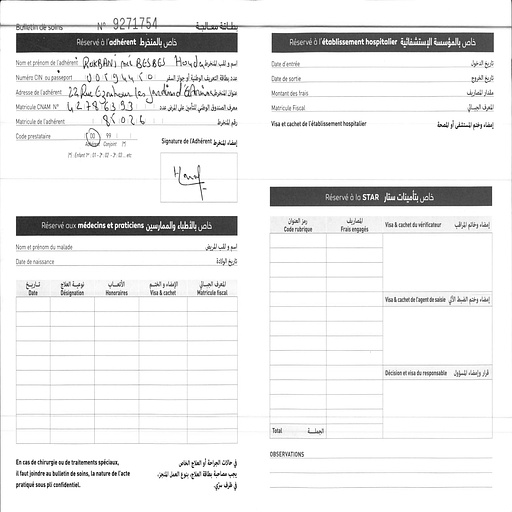 Bulletin de soins N° 9271754 بطاقة علاج
Réservé à l'adhérent خاص بالمنخرط
Nom et prénom de l'adhérent ROKBANI née BESBES Houda اسم و لقب المنخرط
Numéro CIN ou passeport عدد بطاقة التعريف الوطنية أو جواز السفر
Adresse de l'adhérent 22 Rue les Jardins عنوان المنخرط
Matricule CNAM N° 42786393 معرف الصندوق الوطني للتأمين على المرض عدد
Matricule de l'adhérent 85026 رقم المنخرط
Code prestataire 00 99
Adhérent Conjoint
Signature de l'Adhérent إمضاء المنخرط
Réservé aux médecins et praticiens خاص بالأطباء والممارسين
Nom et prénom du malade اسم و لقب المريض
Date de naissance تاريخ الولادة
تاريخ نوعية العلاج الأتعاب الإمضاء و الختم المعرف الجبائي
Date Désignation Honoraires Visa & cachet Matricule fiscal
En cas de chirurgie ou de traitements spéciaux,
il faut joindre au bulletin de soins, la nature de l'acte
pratiqué sous pli confidentiel.
في حالات الجراحة أو العلاج الخاص
يجب مصاحبة بطاقة العلاج، بنوع العمل المنجز،
في ظرف سري.
Réservé à l'établissement hospitalier خاص بالمؤسسة الإستشفائية
Date d'entrée تاريخ الدخول
Date de sortie تاريخ الخروج
Montant des frais مقدار المصاريف
Matricule Fiscal المعرف الجبائي
Visa et cachet de l'établissement hospitalier إمضاء وختم المستشفى أو المصحة
Réservé à la STAR خاص بتأمينات ستار
رمز العنوان المصاريف
Code rubrique Frais engagés
Visa & cachet du vérificateur إمضاء وخاتم المراقب
Visa & cachet de l'agent de saisie إمضاء وختم الضبط الآلي
Décision et visa du responsable قرار وإمضاء المسؤول
Total الجملة
OBSERVATIONS